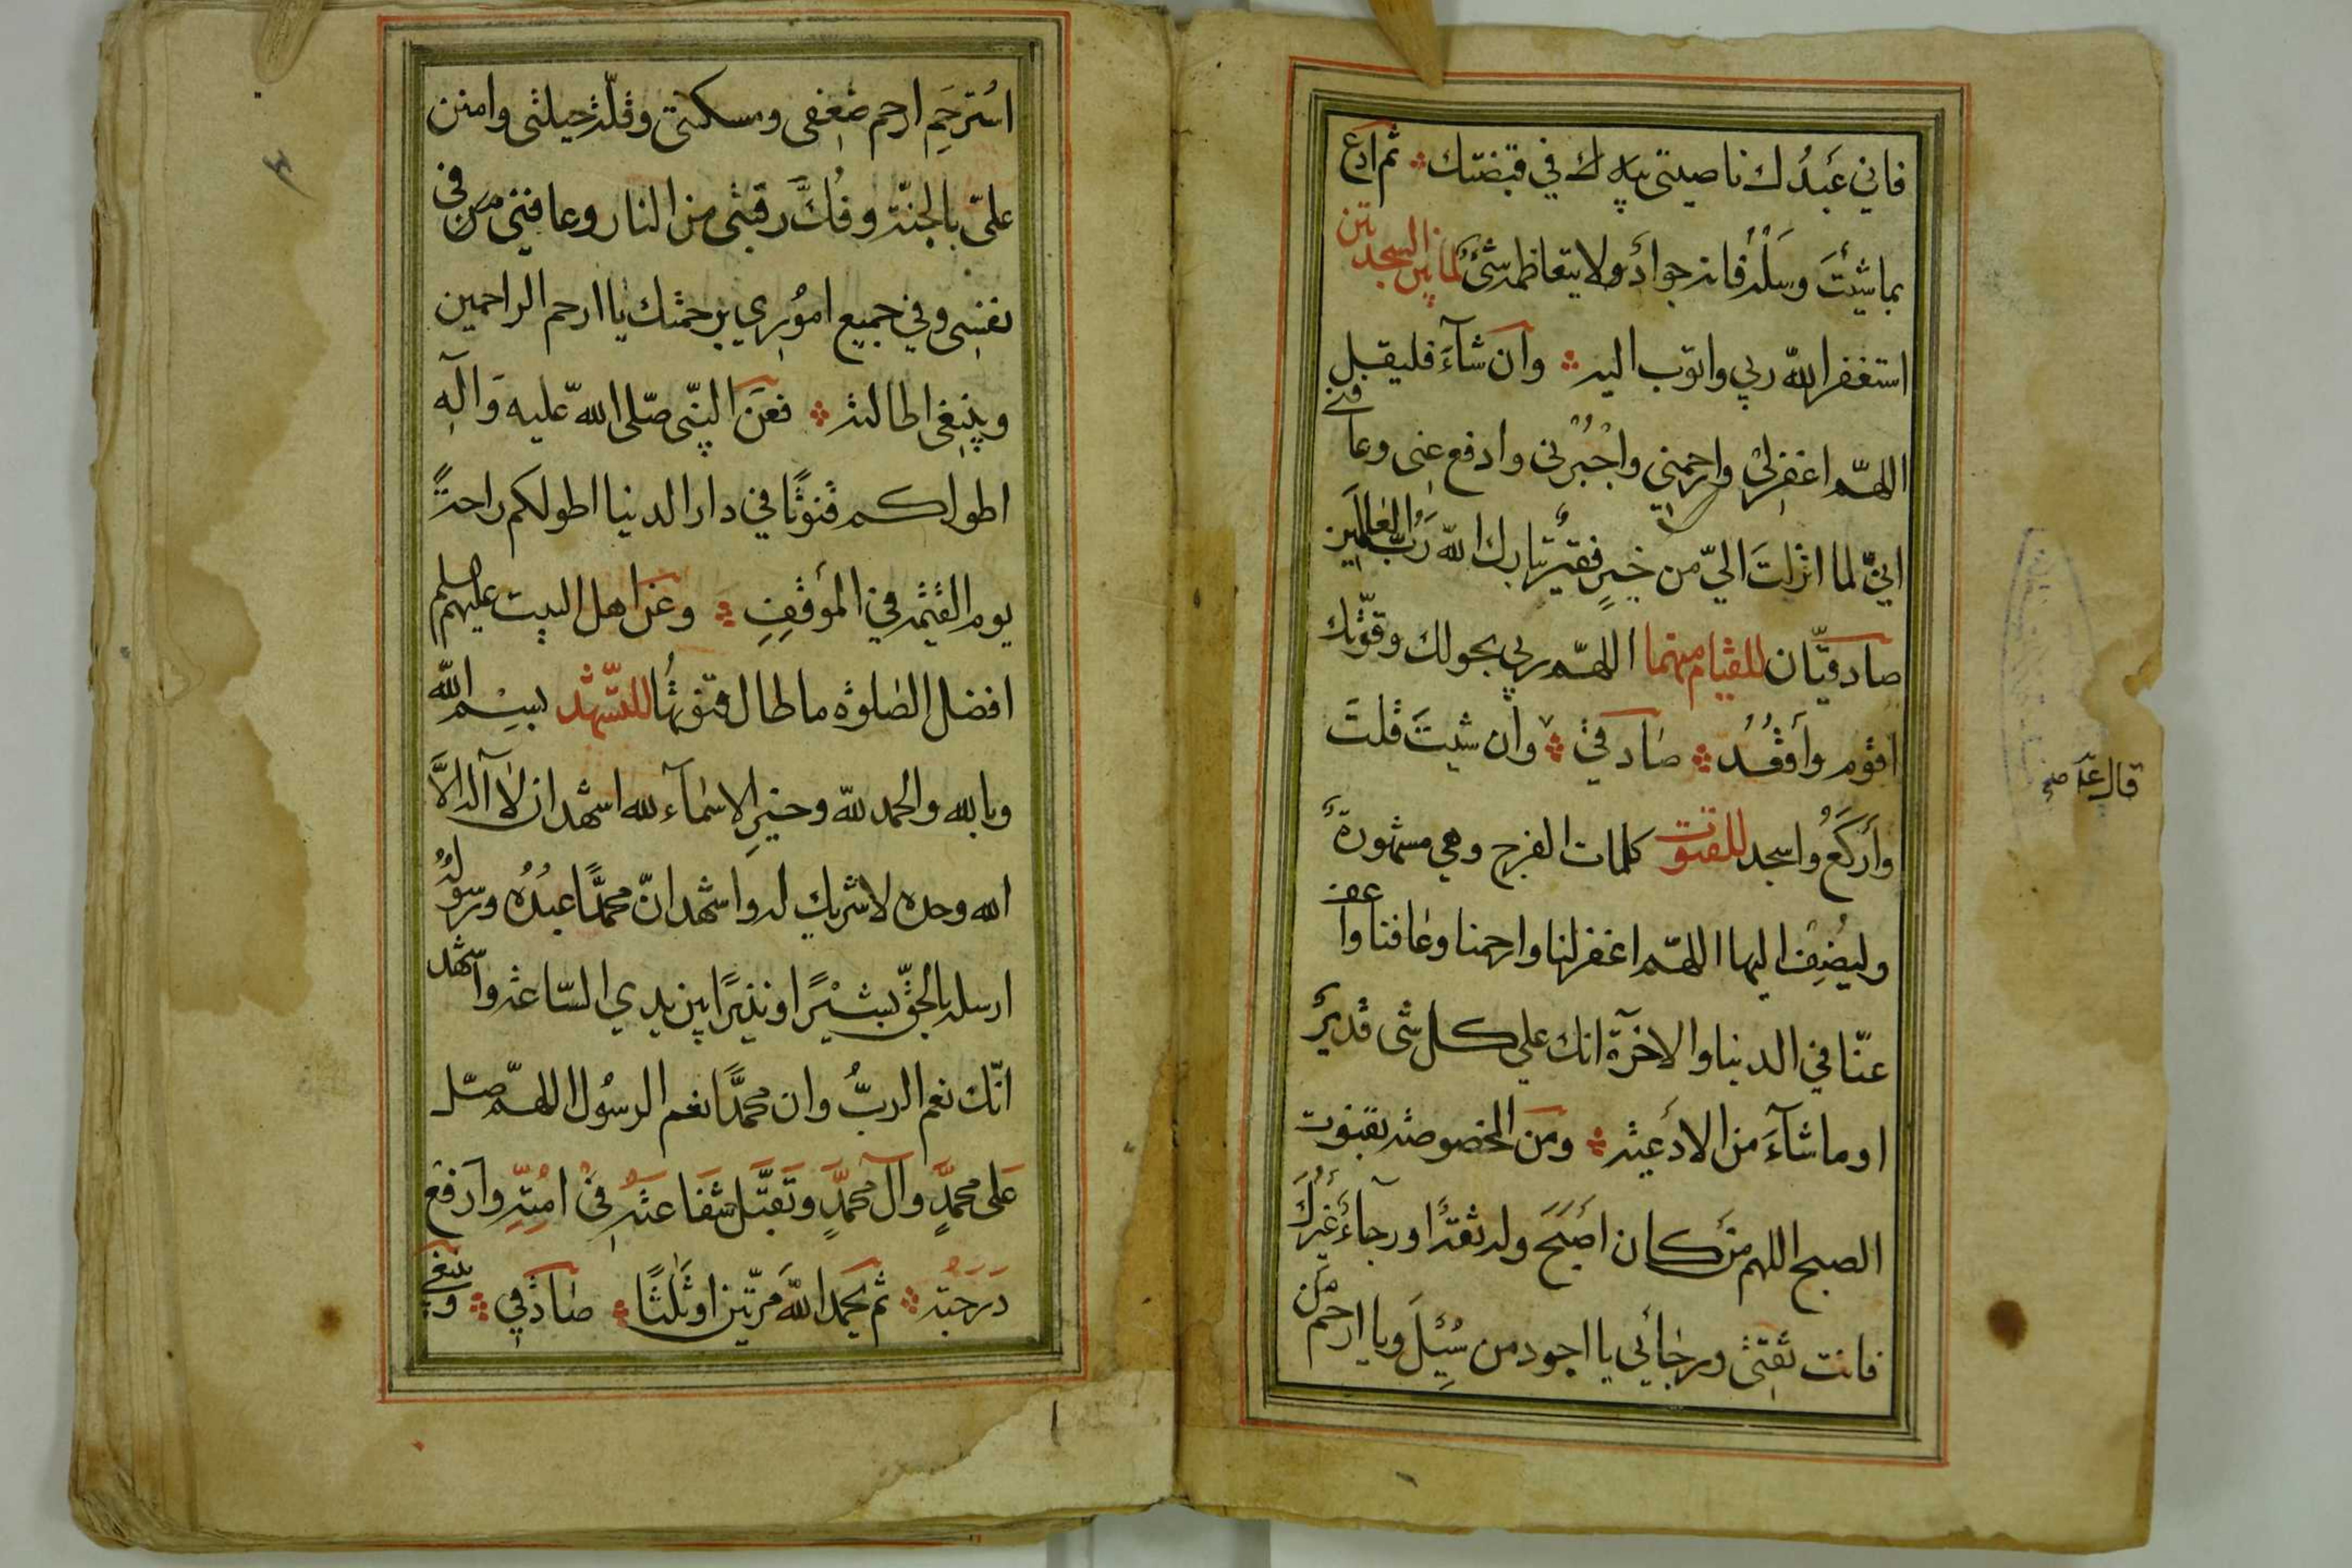 فاني عَبدُك ناصيتي بيدك في قبضتك ثم ادع
بما شئتَ وسَلْهُ فانه جوادٌ ولا يتعاظمه شئٌ لما بين السجدتين
استغفر الله ربي واتوب اليه وان شآءَ فليقبل
اللهمّ اغفرلي وارحمني واجْبُرْني وادفع عني وعافني
انيّ لما انزلتَ اليّ من خيرٍ فقيرٌ تبارك الله رَبُّ العٰالَمين
صادقيّان للقيام منهما اللهمّ ربي بحولك وقوّتك
اقوم وأقعُدُ صٰادقي وان شيتَ قلتَ
وأركَعُ واسجد للقنوت كلمات الفرج وهي مشهورةٌ
وليُضِف اليها اللهمّ اغفرلنا وارحمنا وعٰافنا واعف
عنّا في الدنيا والاخرة انك علي كل شئ قديرٌ
او ما شآءَ من الادعيه ومن المخصوصه بقنوت
الصبح اللهم من كان اَصبَحَ وله ثقةٌ اورجآءٌ غَيرُكَ
فانت ثقتي ورجٰائي يا اجود من سُئِلَ ويا ارحم من
قال عمّ صح
اسْتُرحِمَ ارحم ضعفي ومسكنتي وقلّة حيلتي وامنن
علىّ بالجنّة وفُكَّ رقبتي من النار وعافني في
نفسي وفي جميع امُوري برحمتك يا ارحم الراحمين
وينبغي اطالته فعَن النبّي صّلى الله عليه وَآلهِ
اطولكم قنوتًا في دار الدنيا اطولكم راحةً
يوم القيٰمه في الموقف وعن اهل البيت عليهم السلم
افضل الصٰلوٰة ما طال قنوتهُا للتشّهد بسِْم الله
وبالله والحمد لله وخيرِ الاسمٰآء لله اشهد ان لآ آله الاَّ
الله وحده لا شريك له واشهد انّ محمّدًا عبدُهُ ورسولُهُ
ارسله بالحقّ بشيْرًا ونذيرًا بين يدي السّاعة واشهد
انّك نعم الربُّ وان محمّدًا نعم الرسُول اللهمّ صّل
عَلى محمّدٍ وآل محمّدٍ وتَقبَّل شَفَاعتَهُ فيْ امُتِّهِ وآرفع
دَرَجتَهُ ثم يحَمد اللهَّ مَرّتين اوثَلٰثًا صٰادقي وينبغي